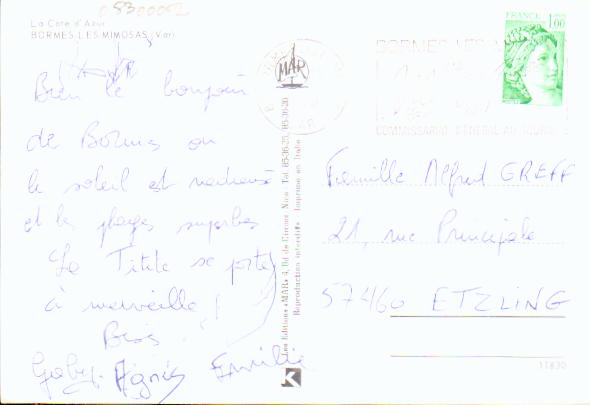 08300052
La Côte d'Azur
BORMES LES MIMOSAS (Var)
Bien le bonjour
de Bormes où
le soleil est radieux
et les plages superbes
La Titite se porte
à merveille !
Bises
Gaby. Agnès Emilie
Les Editions «MAR» 4, Bd de Cimiez Nice - Tél. 85-36-25, 85-36-20
Reproduction interdite Imprimé en Italie
MAR
K
FRANCE 1,00
BORMES LES
COMMISSARIAT GENERAL AU TOURISME
Famille Alfred GREFF
21, rue Principale
57460 ETZLING
11830